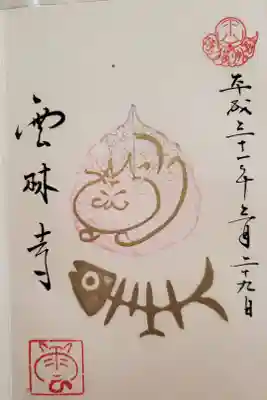 平成三十一年三月二十九日
雲林寺